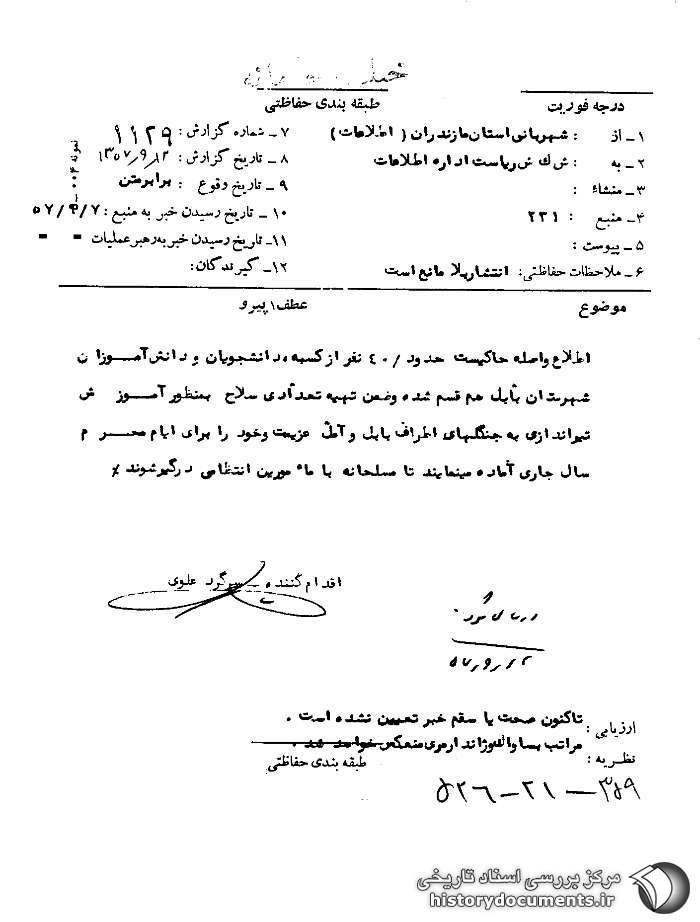 طبقه بندی حفاظتی
درجه فوریت
۱ـ از : شهربانی استان مازندران ( اطلاعات )
۲ـ به : ش ك ش ریاست اداره اطلاعات
۳ـ منشاء :
۴ـ منبع : ۲۳۱
۵ـ پیوست :
۶ـ ملاحظات حفاظتی : انتشار بلا مانع است
۷ـ شماره گزارش : ۱۱۲۹
۸ـ تاریخ گزارش : ۱۳۵۷/۹/۱۲
۹ـ تاریخ وقوع : برابر متن
۱۰ـ تاریخ رسیدن خبر به منبع : ۵۷/۹/۷
۱۱ـ تاریخ رسیدن خبر به رهبر عملیات - -
۱۲ـ گیرندگان:
نمونه ۰۰۴
موضوع
عطف / پیرو
اطلاع واصله حاکیست حدود /۴۰ نفر از کسبه، دانشجویان و دانش آمـــوزا ن
شهرستا ن بابل هم قسم شده وضمن تهیه تعدادی سلاح بمنظور آمـوز ش
تیراندازی به جنگلهای اطراف بابل و آمل عزیمت وخود را برای ایام محــر م
سال جاری آماده مینمایند تا مسلحانه با ماء مورین انتظامی درگیر شوند ٪
اقدام کننده ـ سرگرد علوی
ارزیابی : تاکنون صحت یا سقم خبر تعیین نشده است .
نظریه : مراتب بساواك و ژاندارمری منعکس خواهد شد .
طبقه بندی حفاظتی
مرکز بررسی اسناد تاریخی
historydocuments.ir